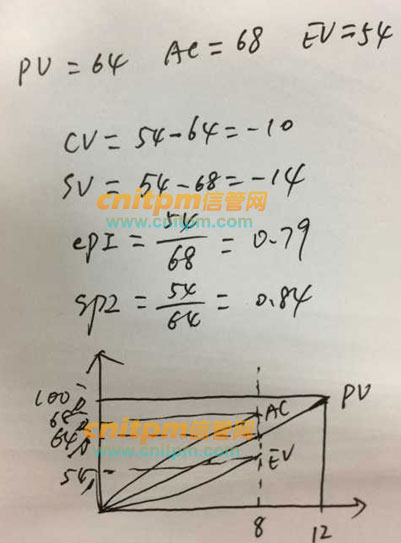 PV = 64 AC = 68 EV = 54
CV = 54 - 64 = -10
SV = 54 - 68 = -14
cnitpm信管网
www.cnitpm.com
CPI = 54/68 = 0.79
SPI = 54/64 = 0.84
100
68
64
54
AC
PV
EV
cnitpm信管网
www.cnitpm.com
8
12